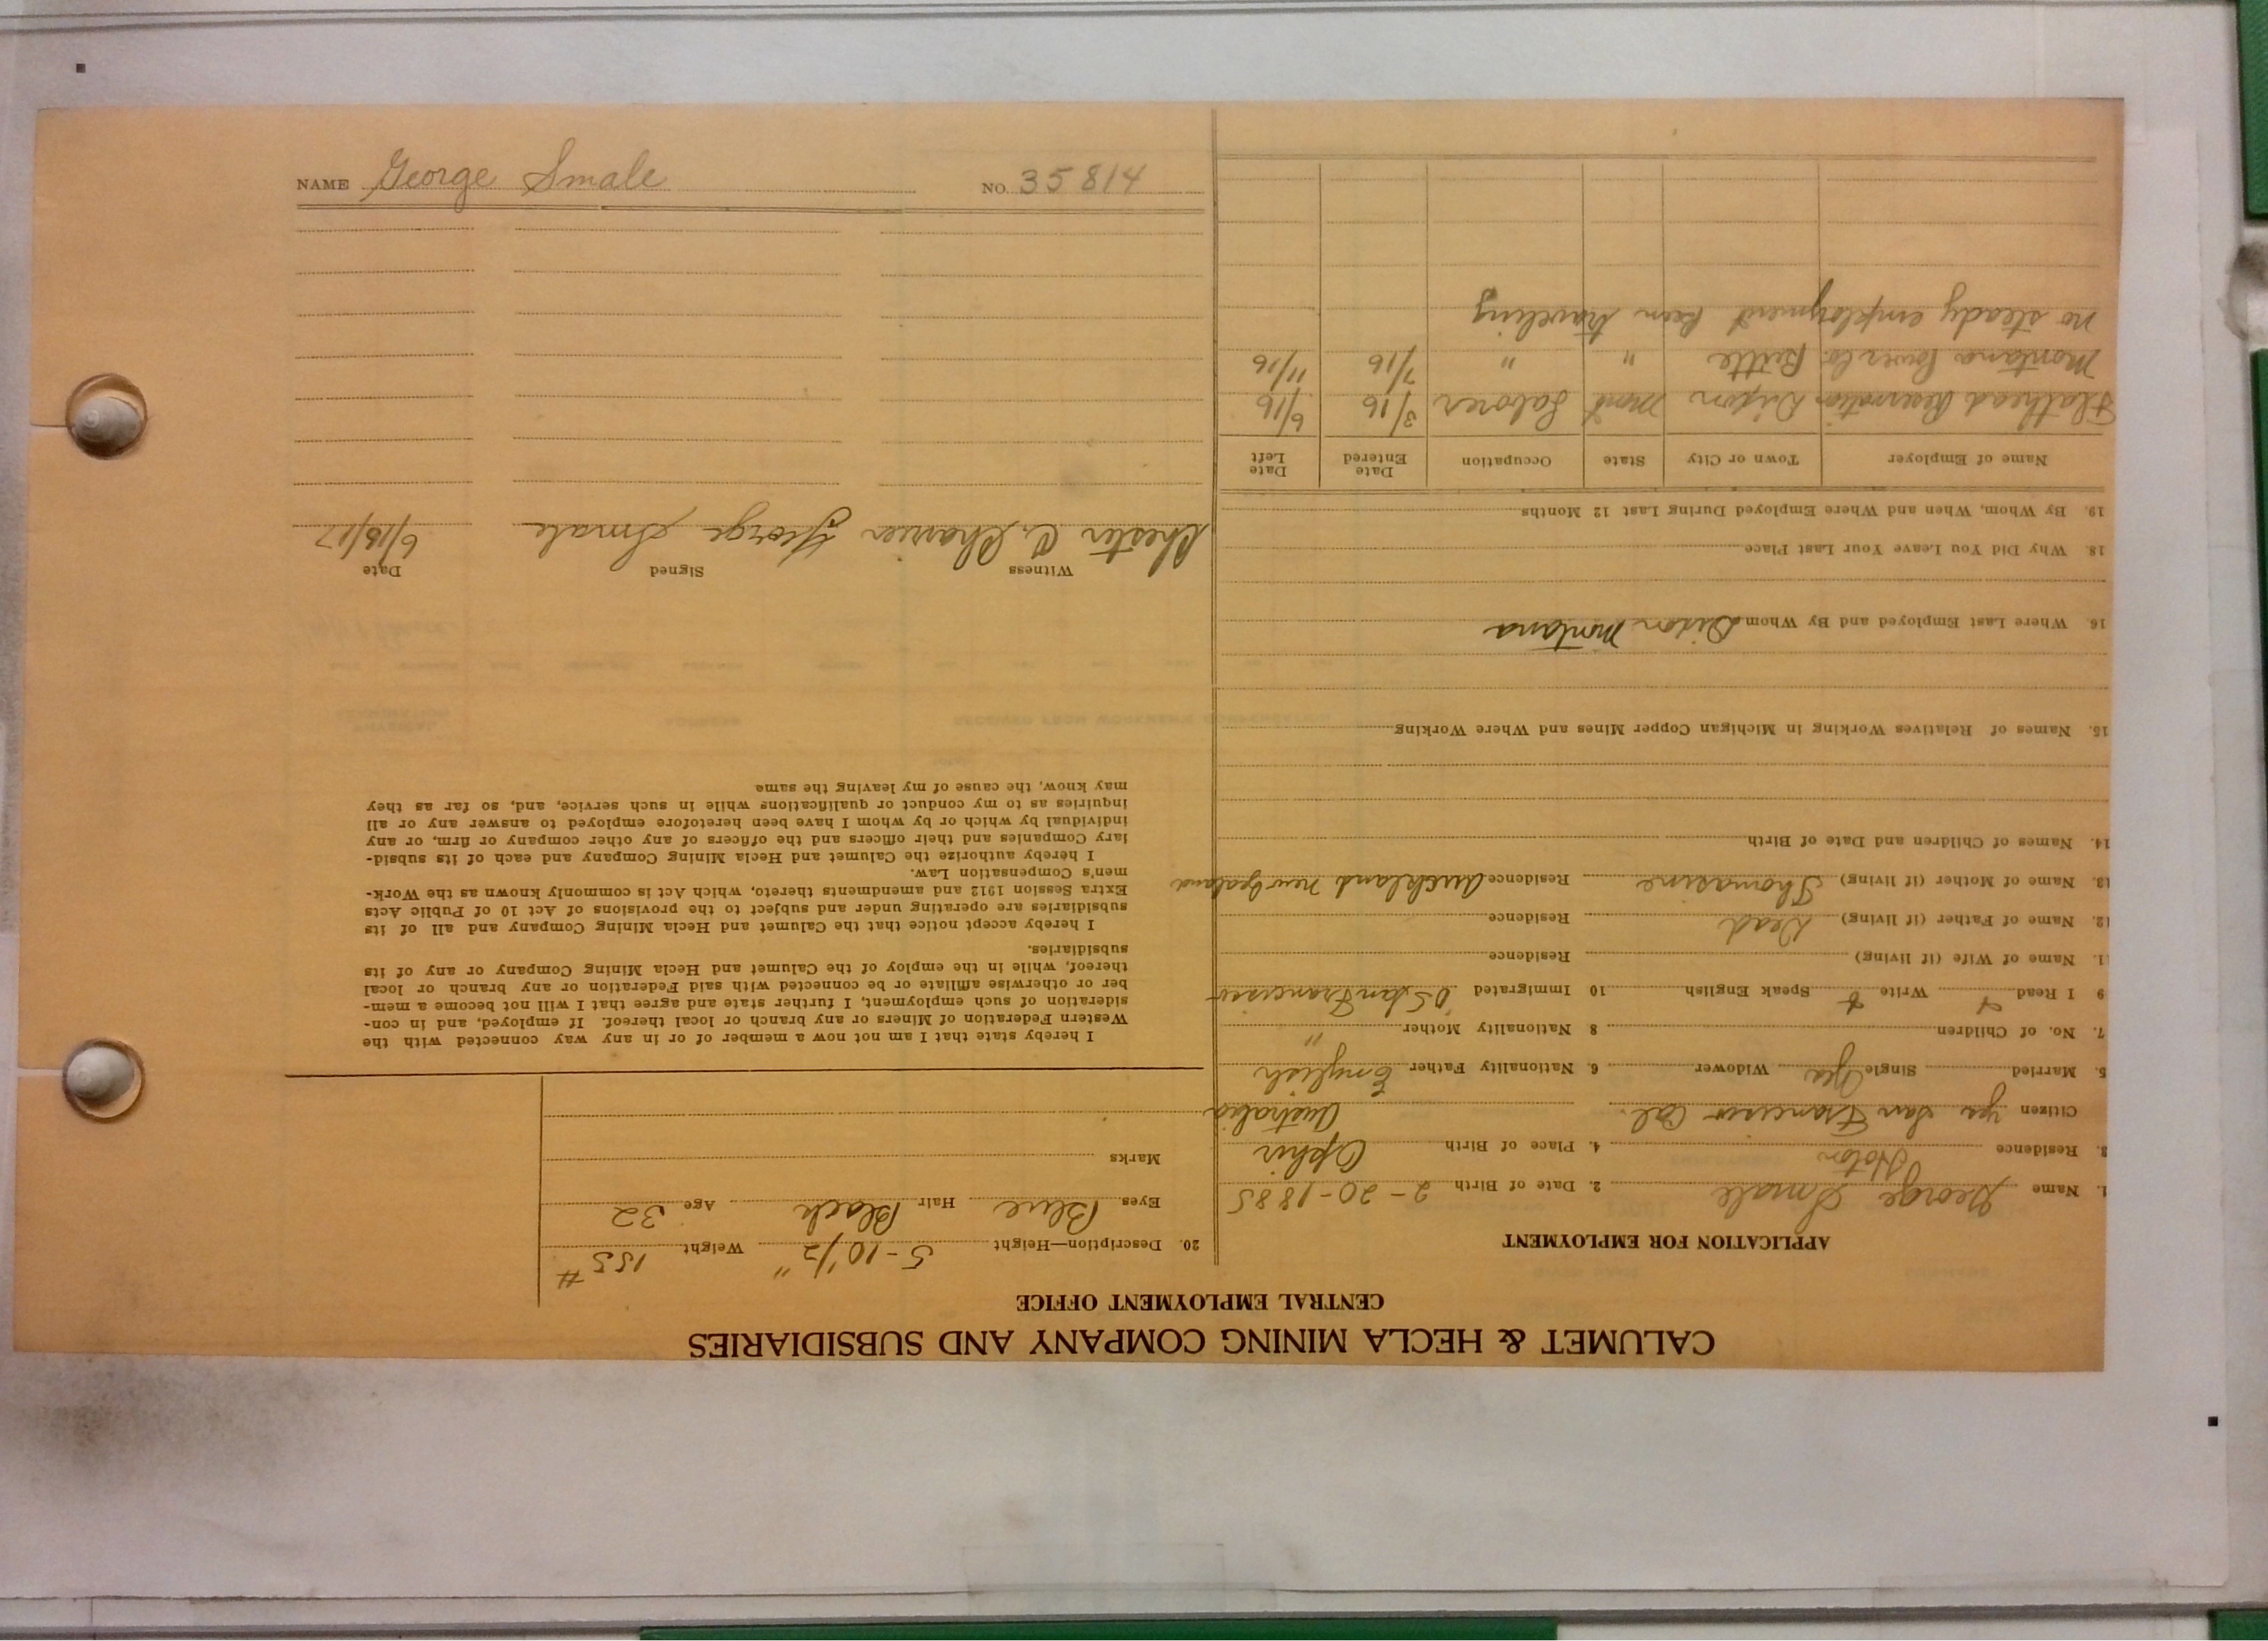 CALUMET & HECLA MINING COMPANY AND SUBSIDIARIES
CENTRAL EMPLOYMENT OFFICE
APPLICATION FOR EMPLOYMENT
1. Name George Smale 2. Date of Birth 2-20-1885
3. Residence Hoton 4. Place of Birth Ophir
Citizen yes San Francisco Cal. Australia
5. Married Single Yes Widower 6. Nationality Father English
7. No. of Children 8 Nationality Mother "
9 I Read Write Speak English 10 Immigrated 05 San Francisco
11. Name of Wife (if living) Residence
12. Name of Father (if living) Dead Residence
13. Name of Mother (if living) Thomasine Residence Auckland New Zealand
14. Names of Children and Date of Birth
15. Names of Relatives Working in Michigan Copper Mines and Where Working
16. Where Last Employed and By Whom Dixon Montana
18. Why Did You Leave Your Last Place
19. By Whom, When and Where Employed During Last 12 Months
Name of Employer Town or City State Occupation Date Entered Date Left
Flathead Reservation Dixon Mont Laborer 3/16 6/16
Montana Power Co. Butte " " 7/16 11/16
no steady employment been traveling
20. Description—Height 5-10 1/2" Weight 155#
Eyes Blue Hair Black Age 32
Marks
I hereby state that I am not now a member of or in any way connected with the
Western Federation of Miners or any branch or local thereof. If employed, and in con-
sideration of such employment, I further state and agree that I will not become a mem-
ber or otherwise affiliate or be connected with said Federation or any branch or local
thereof, while in the employ of the Calumet and Hecla Mining Company or any of its
subsidiaries.
I hereby accept notice that the Calumet and Hecla Mining Company and all of its
subsidiaries are operating under and subject to the provisions of Act 10 of Public Acts
Extra Session 1912 and amendments thereto, which Act is commonly known as the Work-
men's Compensation Law.
I hereby authorize the Calumet and Hecla Mining Company and each of its subsid-
iary Companies and their officers and the officers of any other company or firm, or any
individual by which or by whom I have been heretofore employed to answer any or all
inquiries as to my conduct or qualifications while in such service, and, so far as they
may know, the cause of my leaving the same
Witness Signed Date
Chester C. George Smale 6/16/17
NAME George Smale NO. 35814